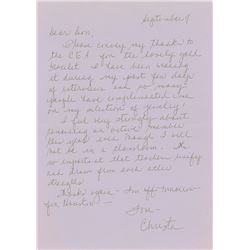 September 9
Dear Don,
Please convey my thanks
to the C.E.A. for the lovely gold
bracelet. I have been wearing
it during my past few days
of interviews and so many
people have complimented me
on my selection of jewelry!
I feel very strongly about
remaining an active member
this year even though I will
not be in a classroom. It's
so important that teachers unify
and draw from each other
strengths.
Thanks again - I'm off tomorrow
for Houston -
Fon -
Christa